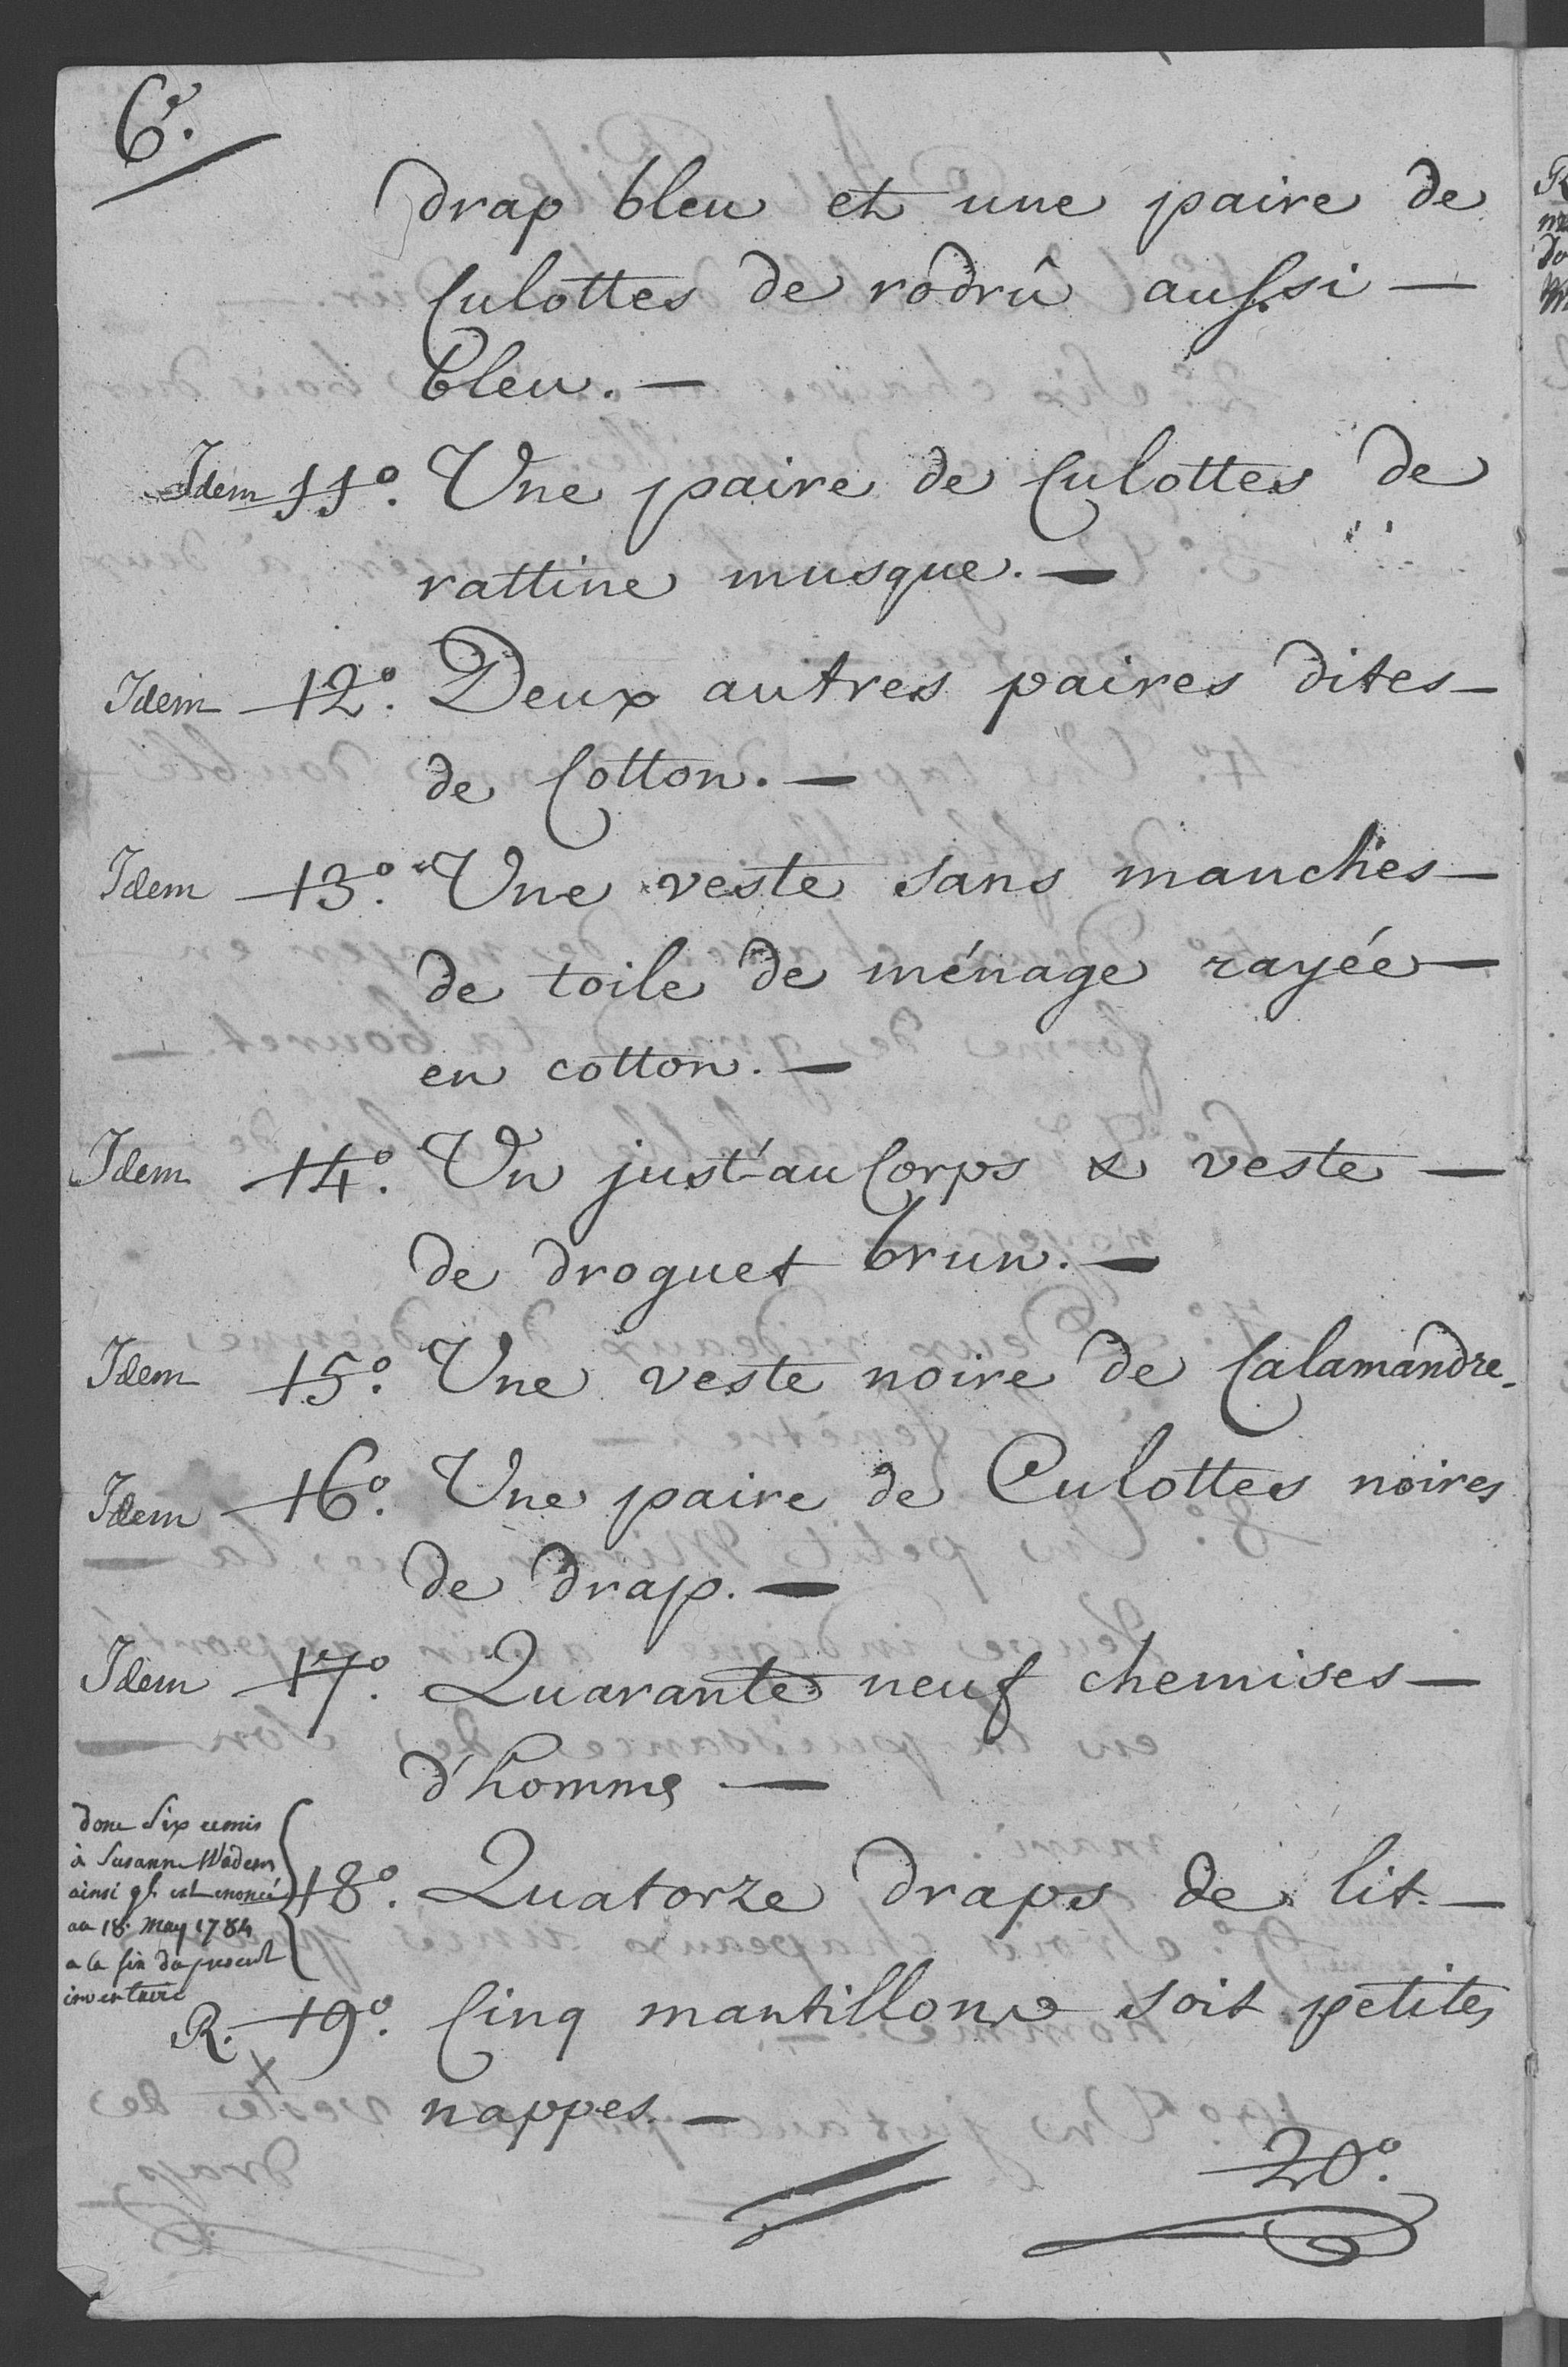 6e.
drap bleu et une paire de
Culottes de rodrû aussi —
bleu. —
Idem 11°. Une paire de Culottes de
rattine musque. —
Idem 12°. Deux autres paires dites —
de Cotton. —
Idem 13°. Une veste sans manches —
de toile de ménage rayée —
en cotton. —
Idem 14°. Un just'au Corps & veste —
de droguet brun. —
Idem 15°. Une veste noire de Calamandre.
Idem 16°. Une paire de Culottes noires
de drap. —
Idem 17°. Quarante neuf chemises —
d'homme —
donc Six remis
à Susanne Wadens
ainsi ql. est enoncé
au 18. May 1784
a la fin du present
inventaire
18°. Quatorze draps de lit. —
R. 19°. Cinq mantillons soit petites
nappes. —
20°.